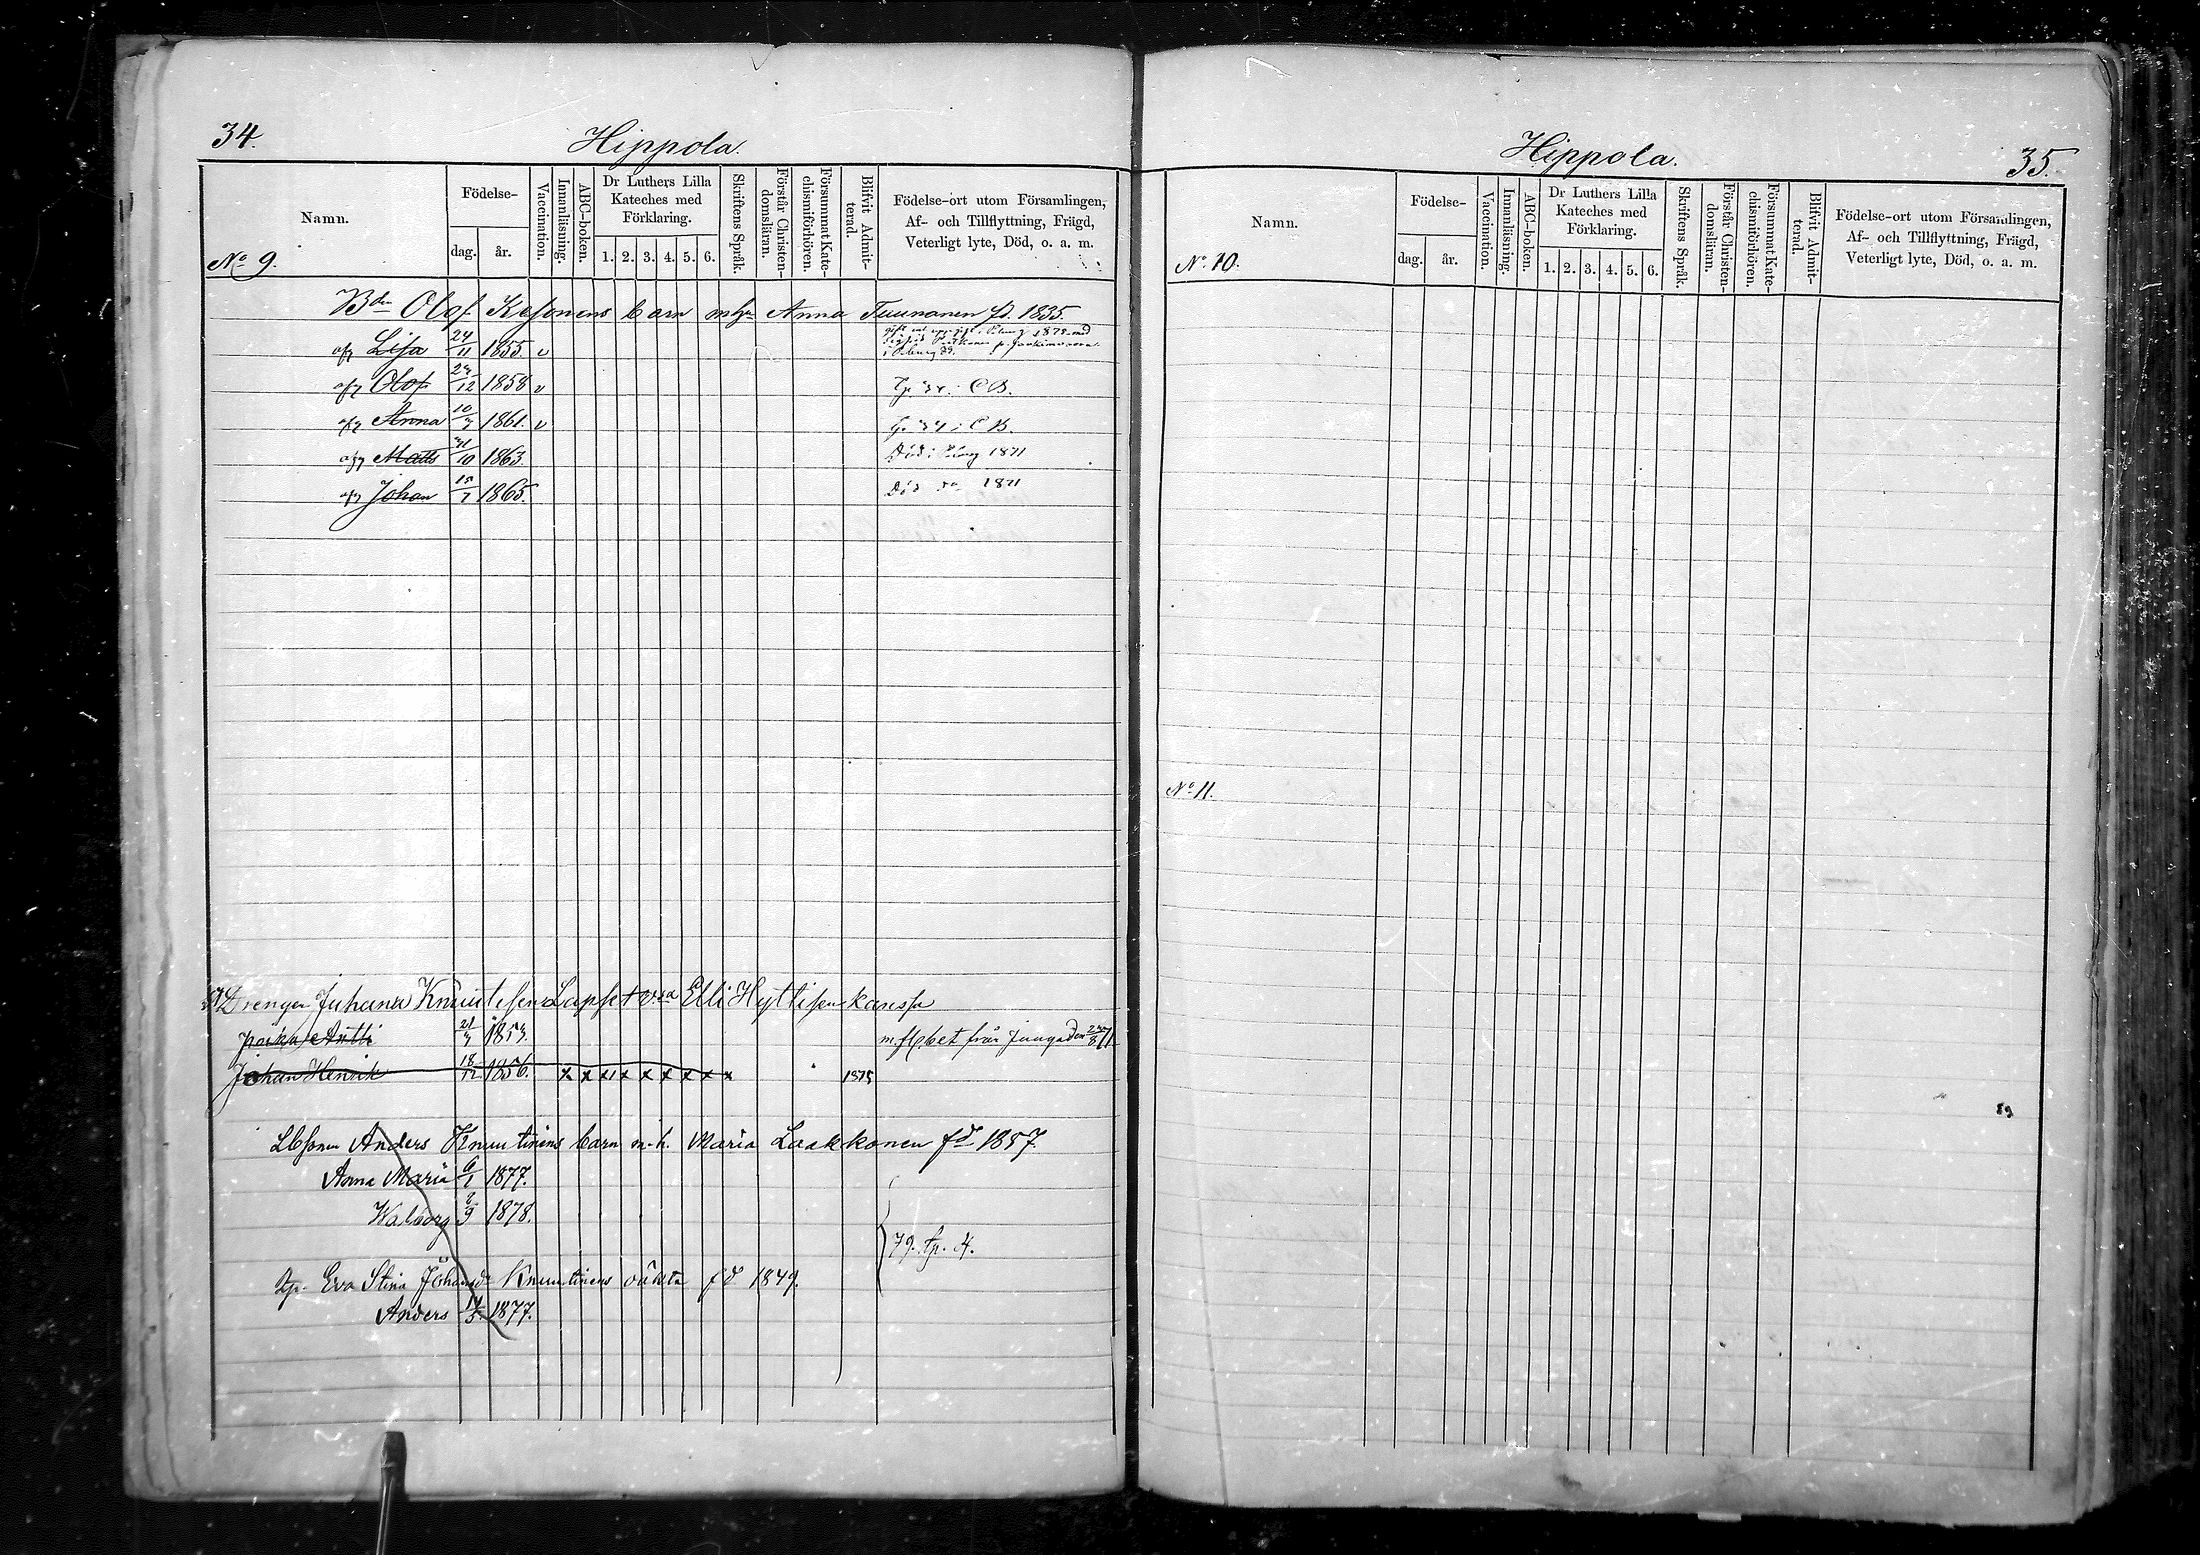 34.
Hippola.
Namn.
Födelse-
dag. år.
Vaccination.
Innanläsning.
ABC-boken.
Dr Luthers Lilla Kateches med Förklaring.
1. 2. 3. 4. 5. 6.
Skriftens Språk.
Förstår Christendomsläran.
Försummat Katechismiförhören.
Blifvit Admitterad.
Födelse-ort utom Församlingen,
Af- och Tillflyttning, Frägd,
Veterligt lyte, Död, o. a. m.
No 9.
Bdn Olof Kesonens barn mhu Anna Tuunanen fd. 1835
afg Lisa 24/11 1855. v
afg Olof 12 1858 v C B.
afg Anna 10 1861. v C B.
afg Matts 10 1863. Död i 1871
afg Johan 15/7 1865. Död do 1871
Drengen Juhana Knuutisen Lapset Elli Hyttisen kanssa
poika Antti 1853. m. fl. bet från Juuga den 71
Johan Henrik 18/12 1856. x x x1 x x x x x x 1875
Anders Knuutinens barn m. h. Maria Laakkonen fd 1857.
Anna Maria 6/1 1877.
Walborg 9 1878.
79. tp. 4.
tp. Eva Stina Johansdr Knuutinens oäkta fd 1849.
Anders 1877.
Hippola.
35.
Namn.
Födelse-
dag. år.
Vaccination.
Innanläsning.
ABC-boken.
Dr Luthers Lilla Kateches med Förklaring.
1. 2. 3. 4. 5. 6.
Skriftens Språk.
Förstår Christendomsläran.
Försummat Katechismiförhören.
Blifvit Admitterad.
Födelse-ort utom Församlingen,
Af- och Tillflyttning, Frägd,
Veterligt lyte, Död, o. a. m.
No 10.
No 11.